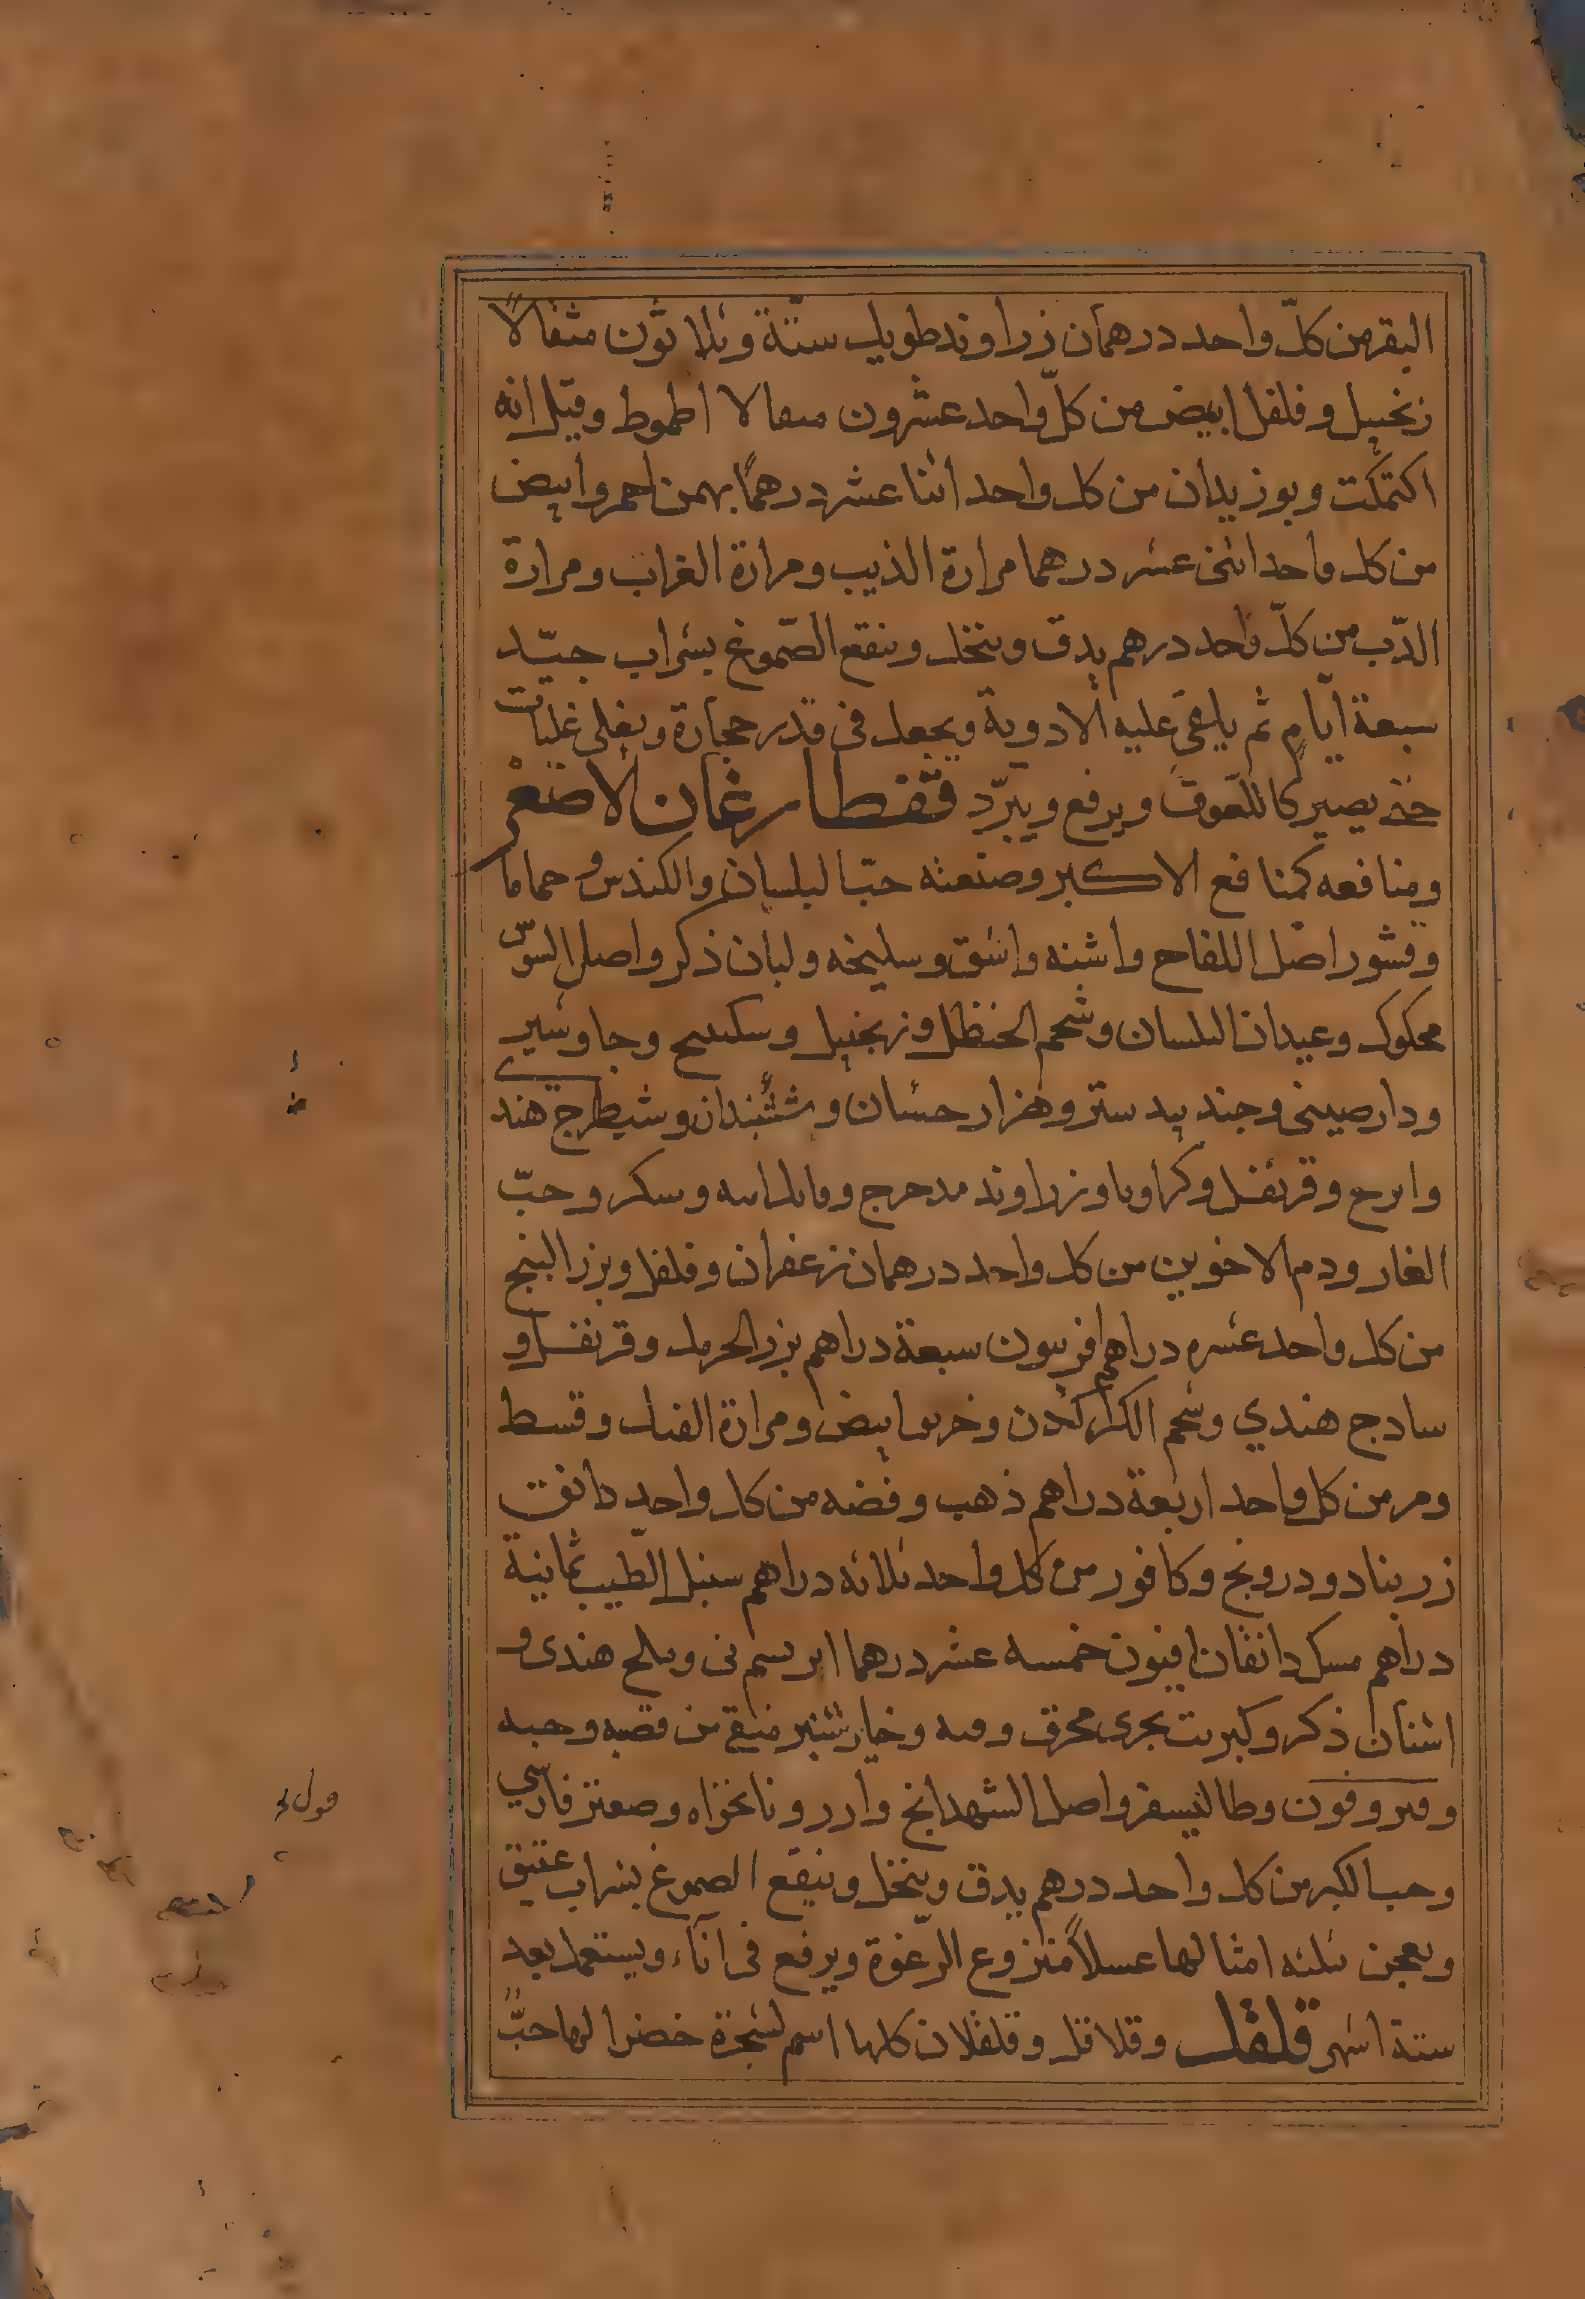 البقر من كلّ واحد درهمان زراوند طويل ستّة وثلاثون مثقالاً
زنجبيل وفلفل ابيض من كلّ واحد عشرون مثقالا اطموط وقيل انه
اكتمكت وبوزيدان من كل واحد اثنا عشر درهمًا بهمن احمر وابيض
من كل واحد اثنى عشر درهما مرارة الذيب ومرارة الغراب ومرارة
الدّب من كلّ واحد درهم يدق وينخل وينقع الصّموغ بشراب جيّد
سبعة ايّام ثم يلقى عليه الادوية ويجعل فى قدر حجارة ويغلى غليات
حتى يصير كاللعوق ويرفع ويبرّد قفطارغان الاصغر
ومنافعه كمنافع الاكبر وصنعته حبّ البلسان والكندس وحماما
وقشور اصل اللفاح واشنه واشق وسليخه ولبان ذكر واصل السوس
محكوك وعيدان البلسان وشحم الحنظل وزنجبيل وسكبينج وجاوشير
ودارصينى وجند بيدستر وهزارحسان وششبندان وشيطرج هندى
وايرج وقرنفل وكراويا وزراوند مدحرج وسكر وحبّ
الغار ودم الاخوين من كل واحد درهمان زعفران وفلفل وبزر البنج
من كل واحد عشره دراهم افربيون سبعة دراهم بزر الحرمل وقرنفل و
سادج هندي وشحم الكركدن وخربق ابيض ومرارة الفيل وقسط
ومر من كل واحد اربعة دراهم ذهب وفضه من كل واحد دانق
زرنباد ودرونج وكافور من كل واحد ثلاثه دراهم سنبل الطّيب ثمانية
دراهم مسك دانقان افيون خمسه عشر درهما ابريسم نى وملح هندى و
اشنان ذكر وكبريت بحرى محرق وخيارشنبر منقى من قصبه وحبه
وطاليسفر واصل الشهدانج ونانخواه وصعتر فارسي
وحب الكبر من كل واحد درهم يدق وينخل وينقع الصموغ بشراب عتيق
ويعجن بثلثه امثالها عسلاً منزوع الرّغوة ويرفع فى اناء ويستعمل بعد
ستة اشهر قلقل وقلاقل وقلقلان كلها اسم لشجرة خضرا لها حبٌّ